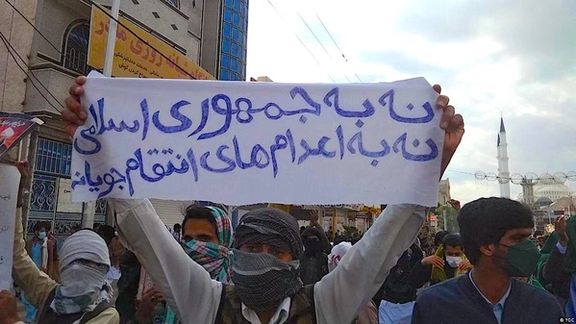 نه به جمهوری اسلامی
نه به اعدام های انتقام جویانه
روزی